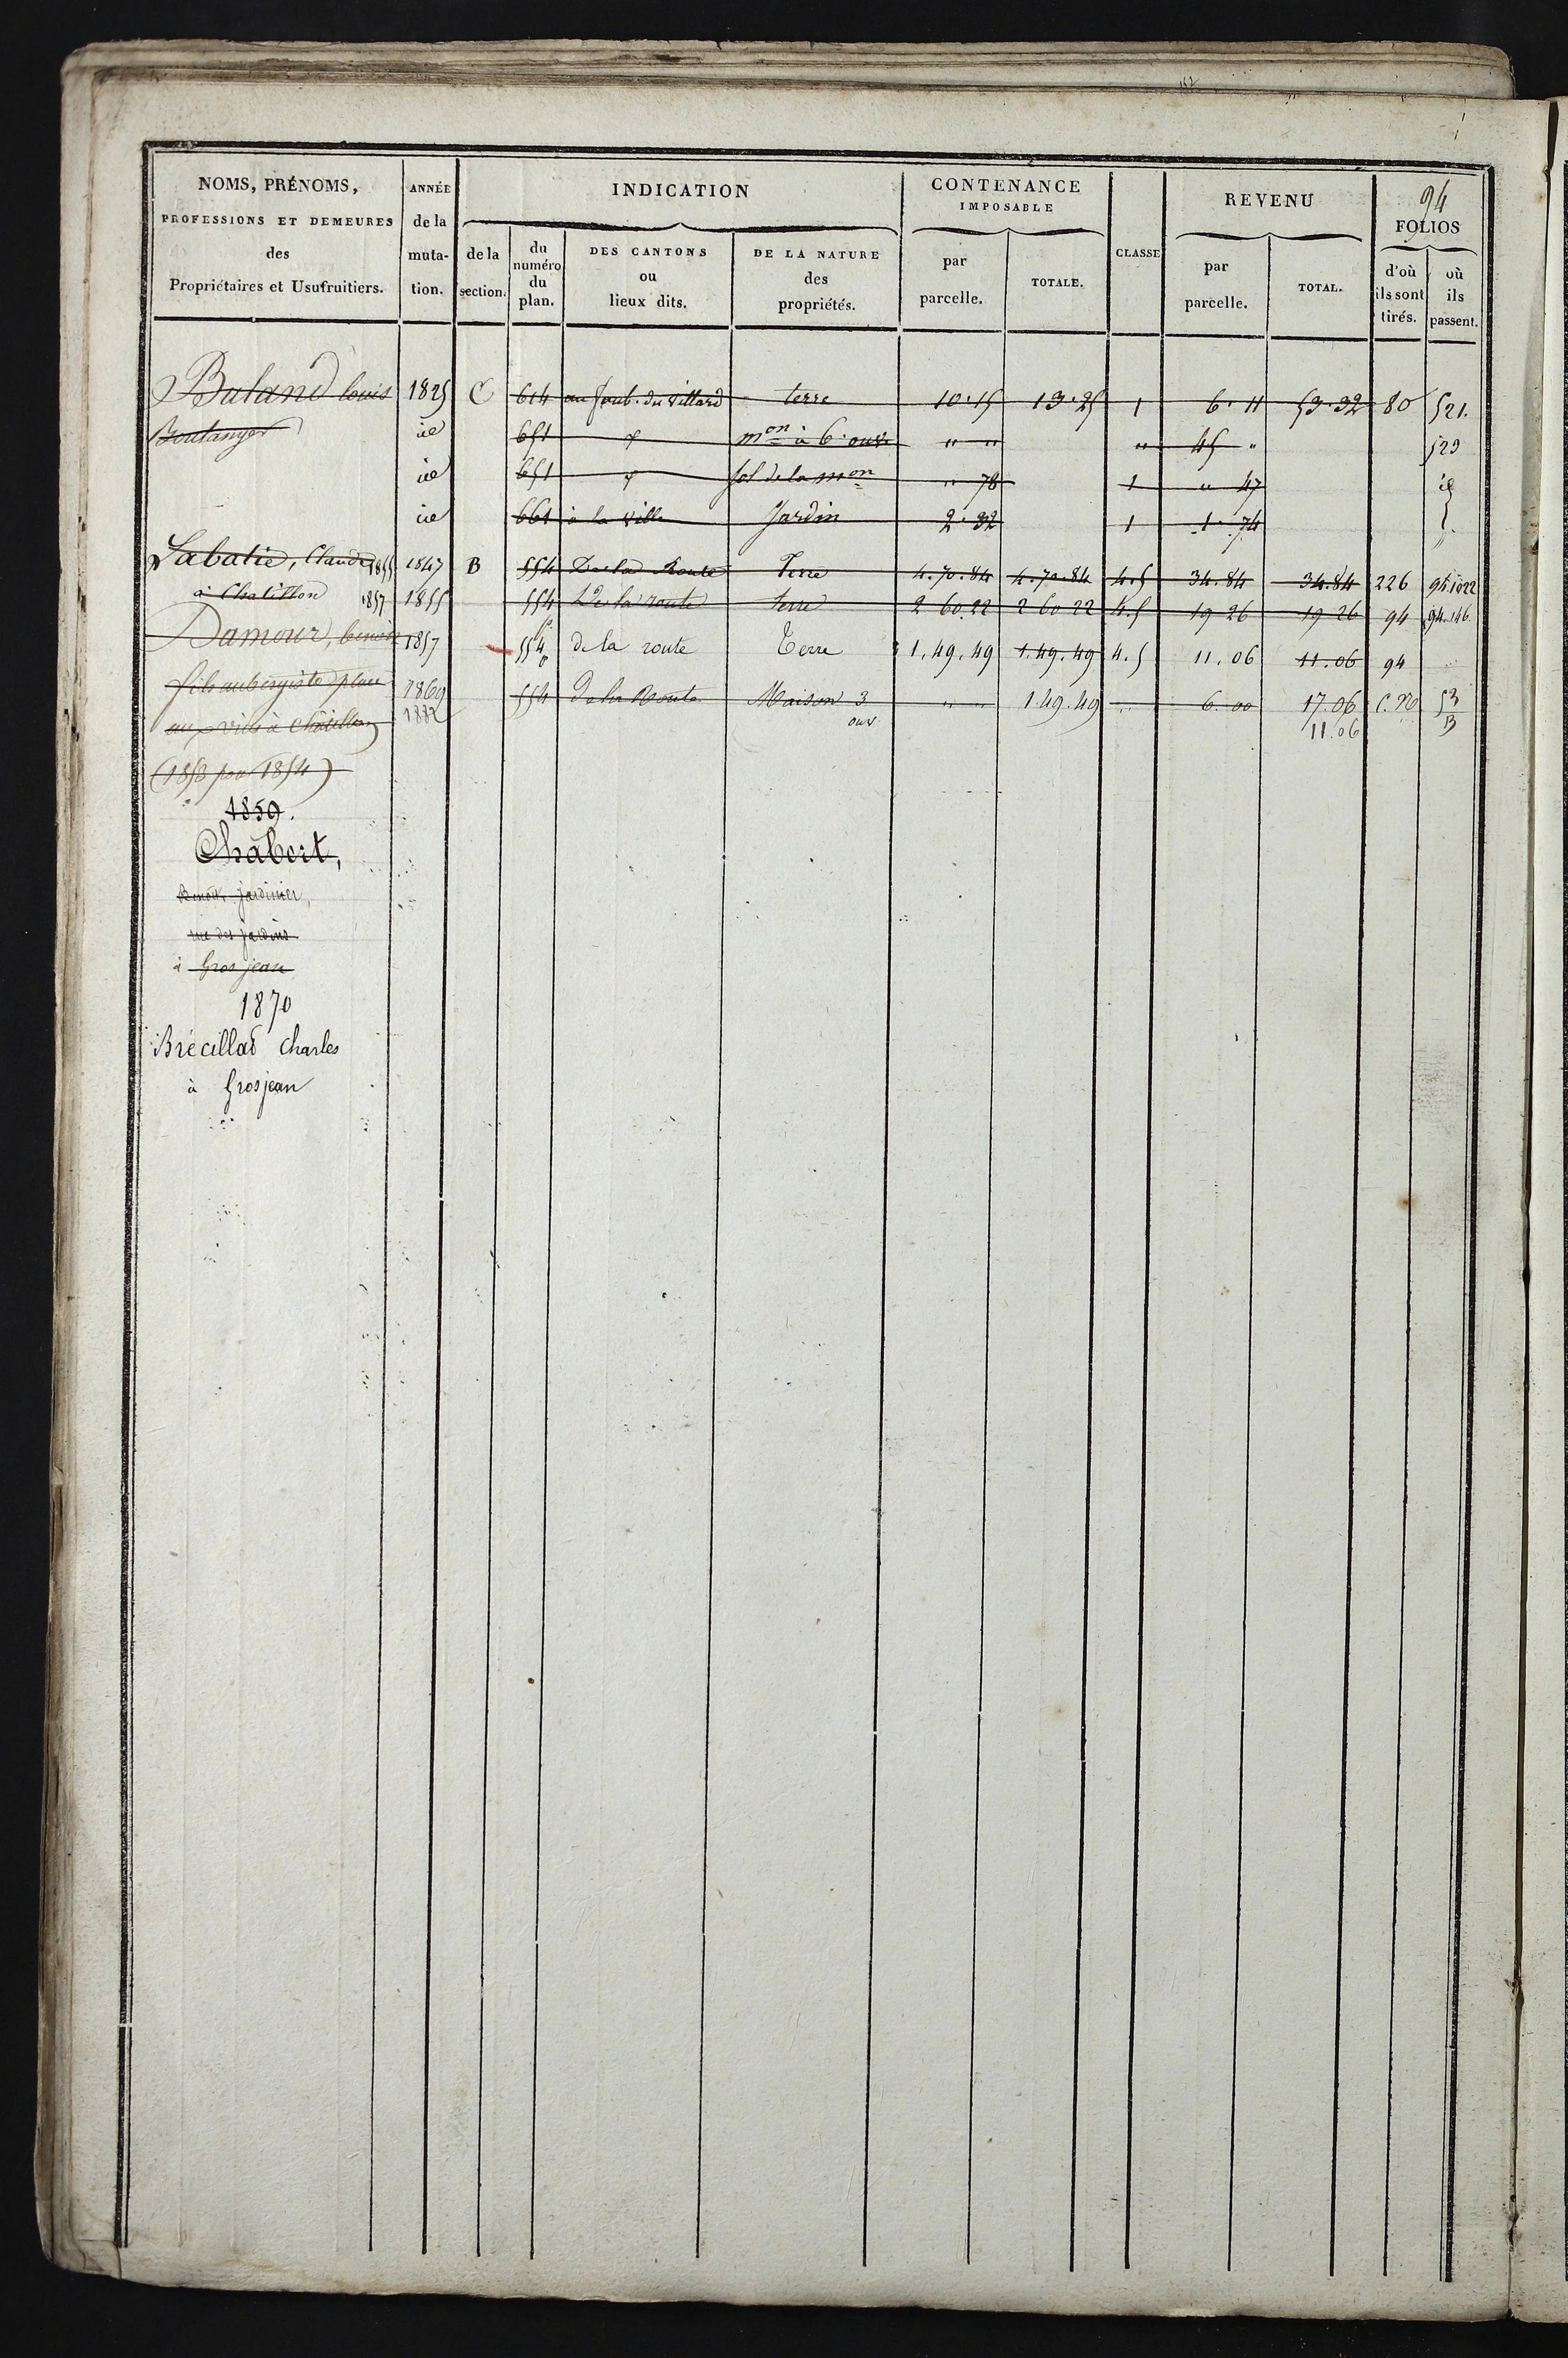 94
NOMS, PRÉNOMS, PROFESSIONS ET DEMEURES des Propriétaires et Usufruitiers.
ANNÉE de la mutation.
INDICATION
de la section.
du numéro du plan.
DES CANTONS ou lieux dits.
DE LA NATURE des propriétés.
CONTENANCE IMPOSABLE
par parcelle.
TOTALE.
CLASSE
REVENU
par parcelle.
TOTAL.
FOLIOS
d'où ils sont tirés.
où ils passent.
Buland louis 1825 C 614 au faub. du Villard terre 10.15 13.25 1 6.11 53.32 80 521.
Boulanger id 651 mon à 6 ouv " " " 45 " 523
id 651 sol de la mon " 78 1 " 47 id
id 661 à la ville Jardin 2.32 1 1.74
Labatie, Claude 1855 1847 B 554 De la Route Terre 4.70.84 4.70.84 4.5 34.84 34.84 226 94.1022
à Chatillon 1857 1855 554 De la route terre 2 60.22 2 60 22 4.5 19 26 19 26 94 94.146
Damour, benoit 1857 554 p de la route Terre 1.49.49 1.49.49 4.5 11.06 11.06 94
fils aubergiste place 1869 554 De la Route Maison 3 ouv " " 1.49.49 " 6.00 17.06 C.N 53
aux à Châtillon 1882 11.06 B
(1853 pour 1854)
1859.
Chabert,
Benoit, jardinier,
rue des jardins
à Gros jean
1870
Brécillad Charles
à Grosjean